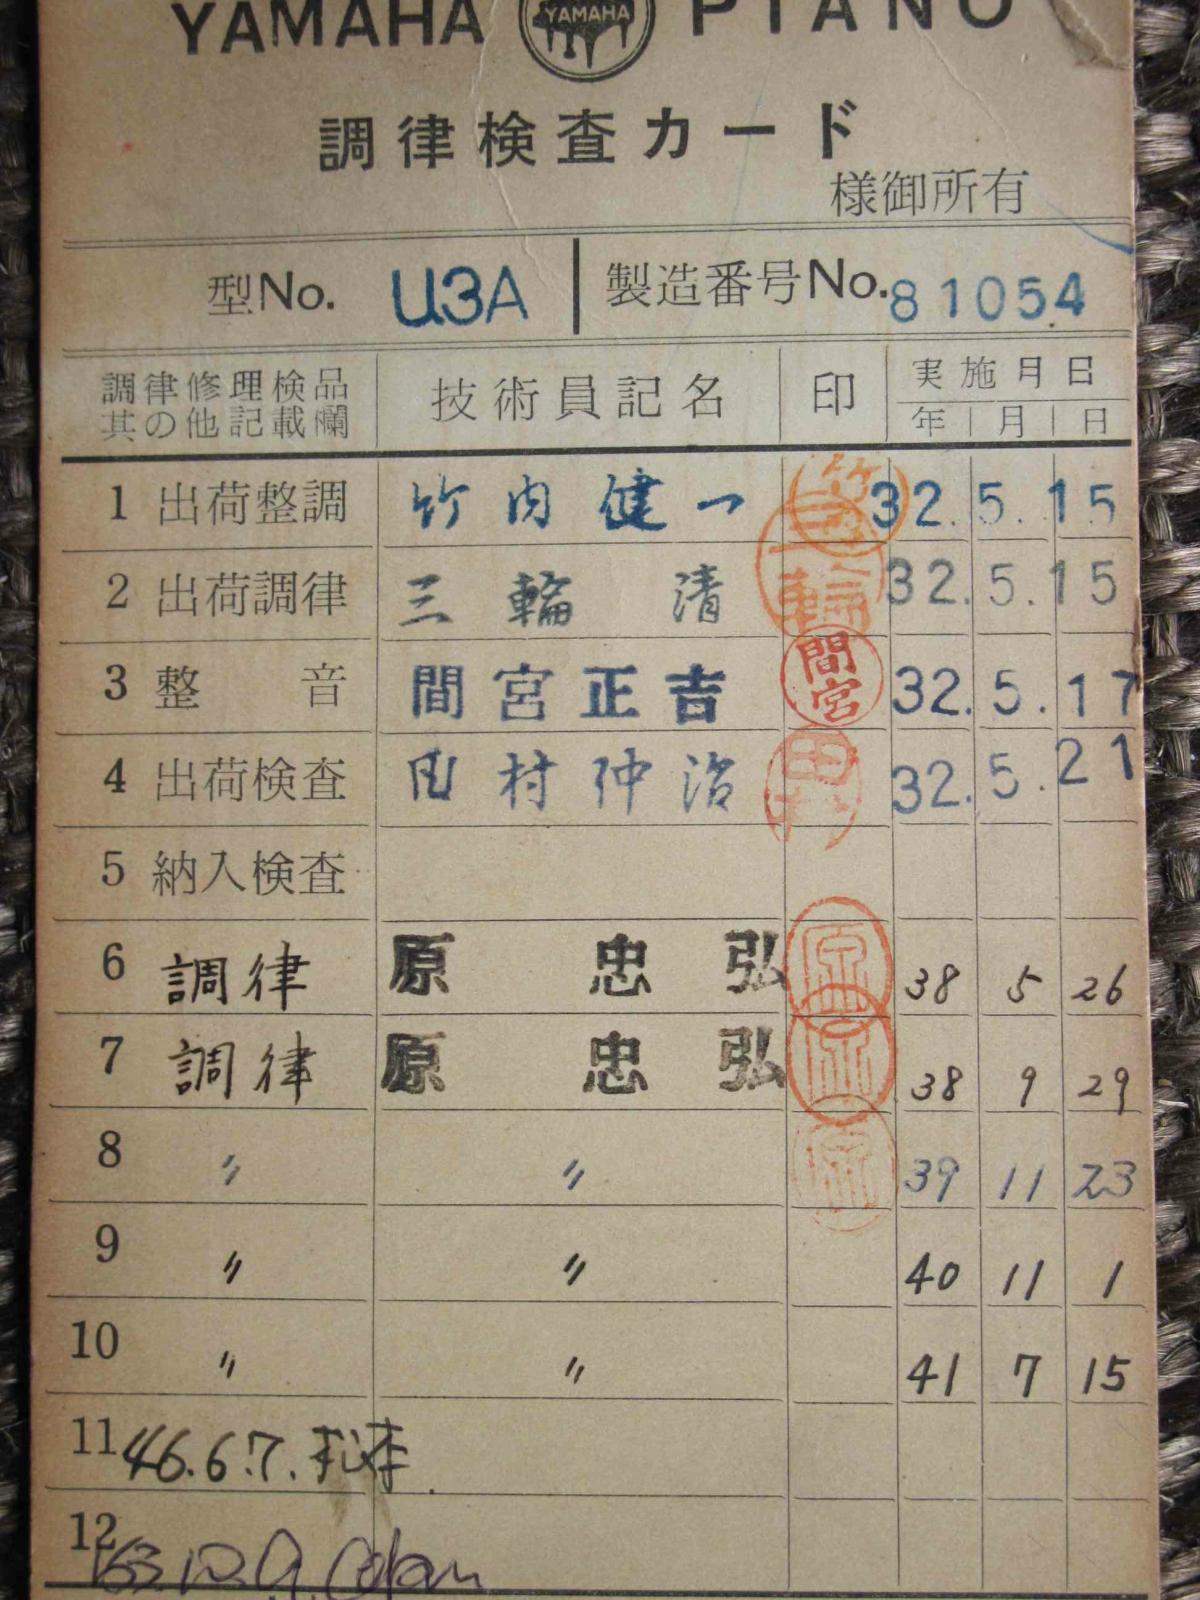 YAMAHA YAMAHA PIANO
調律検査カード
様御所有
型No. U3A 製造番号No. 81054
調律修理検品其の他記載欄 技術員記名 印 実施月日
年 月 日
1 出荷整調 竹内健一 竹内 32. 5. 15
2 出荷調律 三輪 清 三輪 32. 5. 15
3 整 音 間宮正吉 間宮 32. 5. 17
4 出荷検査 田村仲治 32. 5. 21
5 納入検査
6 調律 原 忠弘 原 38 5 26
7 調律 原 忠弘 原 38 9 29
8 〃 〃 原 39 11 23
9 〃 〃 40 11 1
10 〃 〃 41 7 15
11 46.6.7. 松本.
12